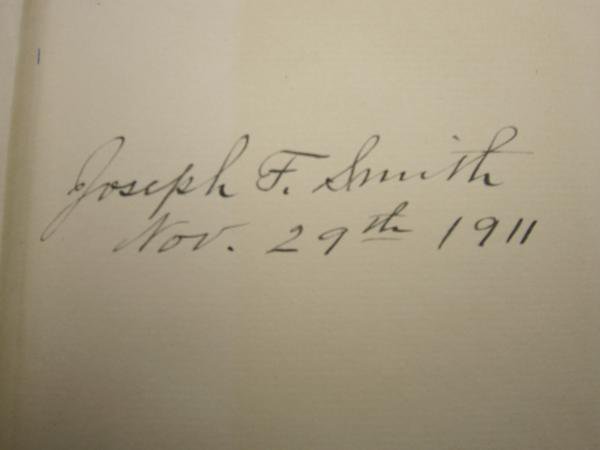 Joseph F. Smith
Nov. 29th 1911